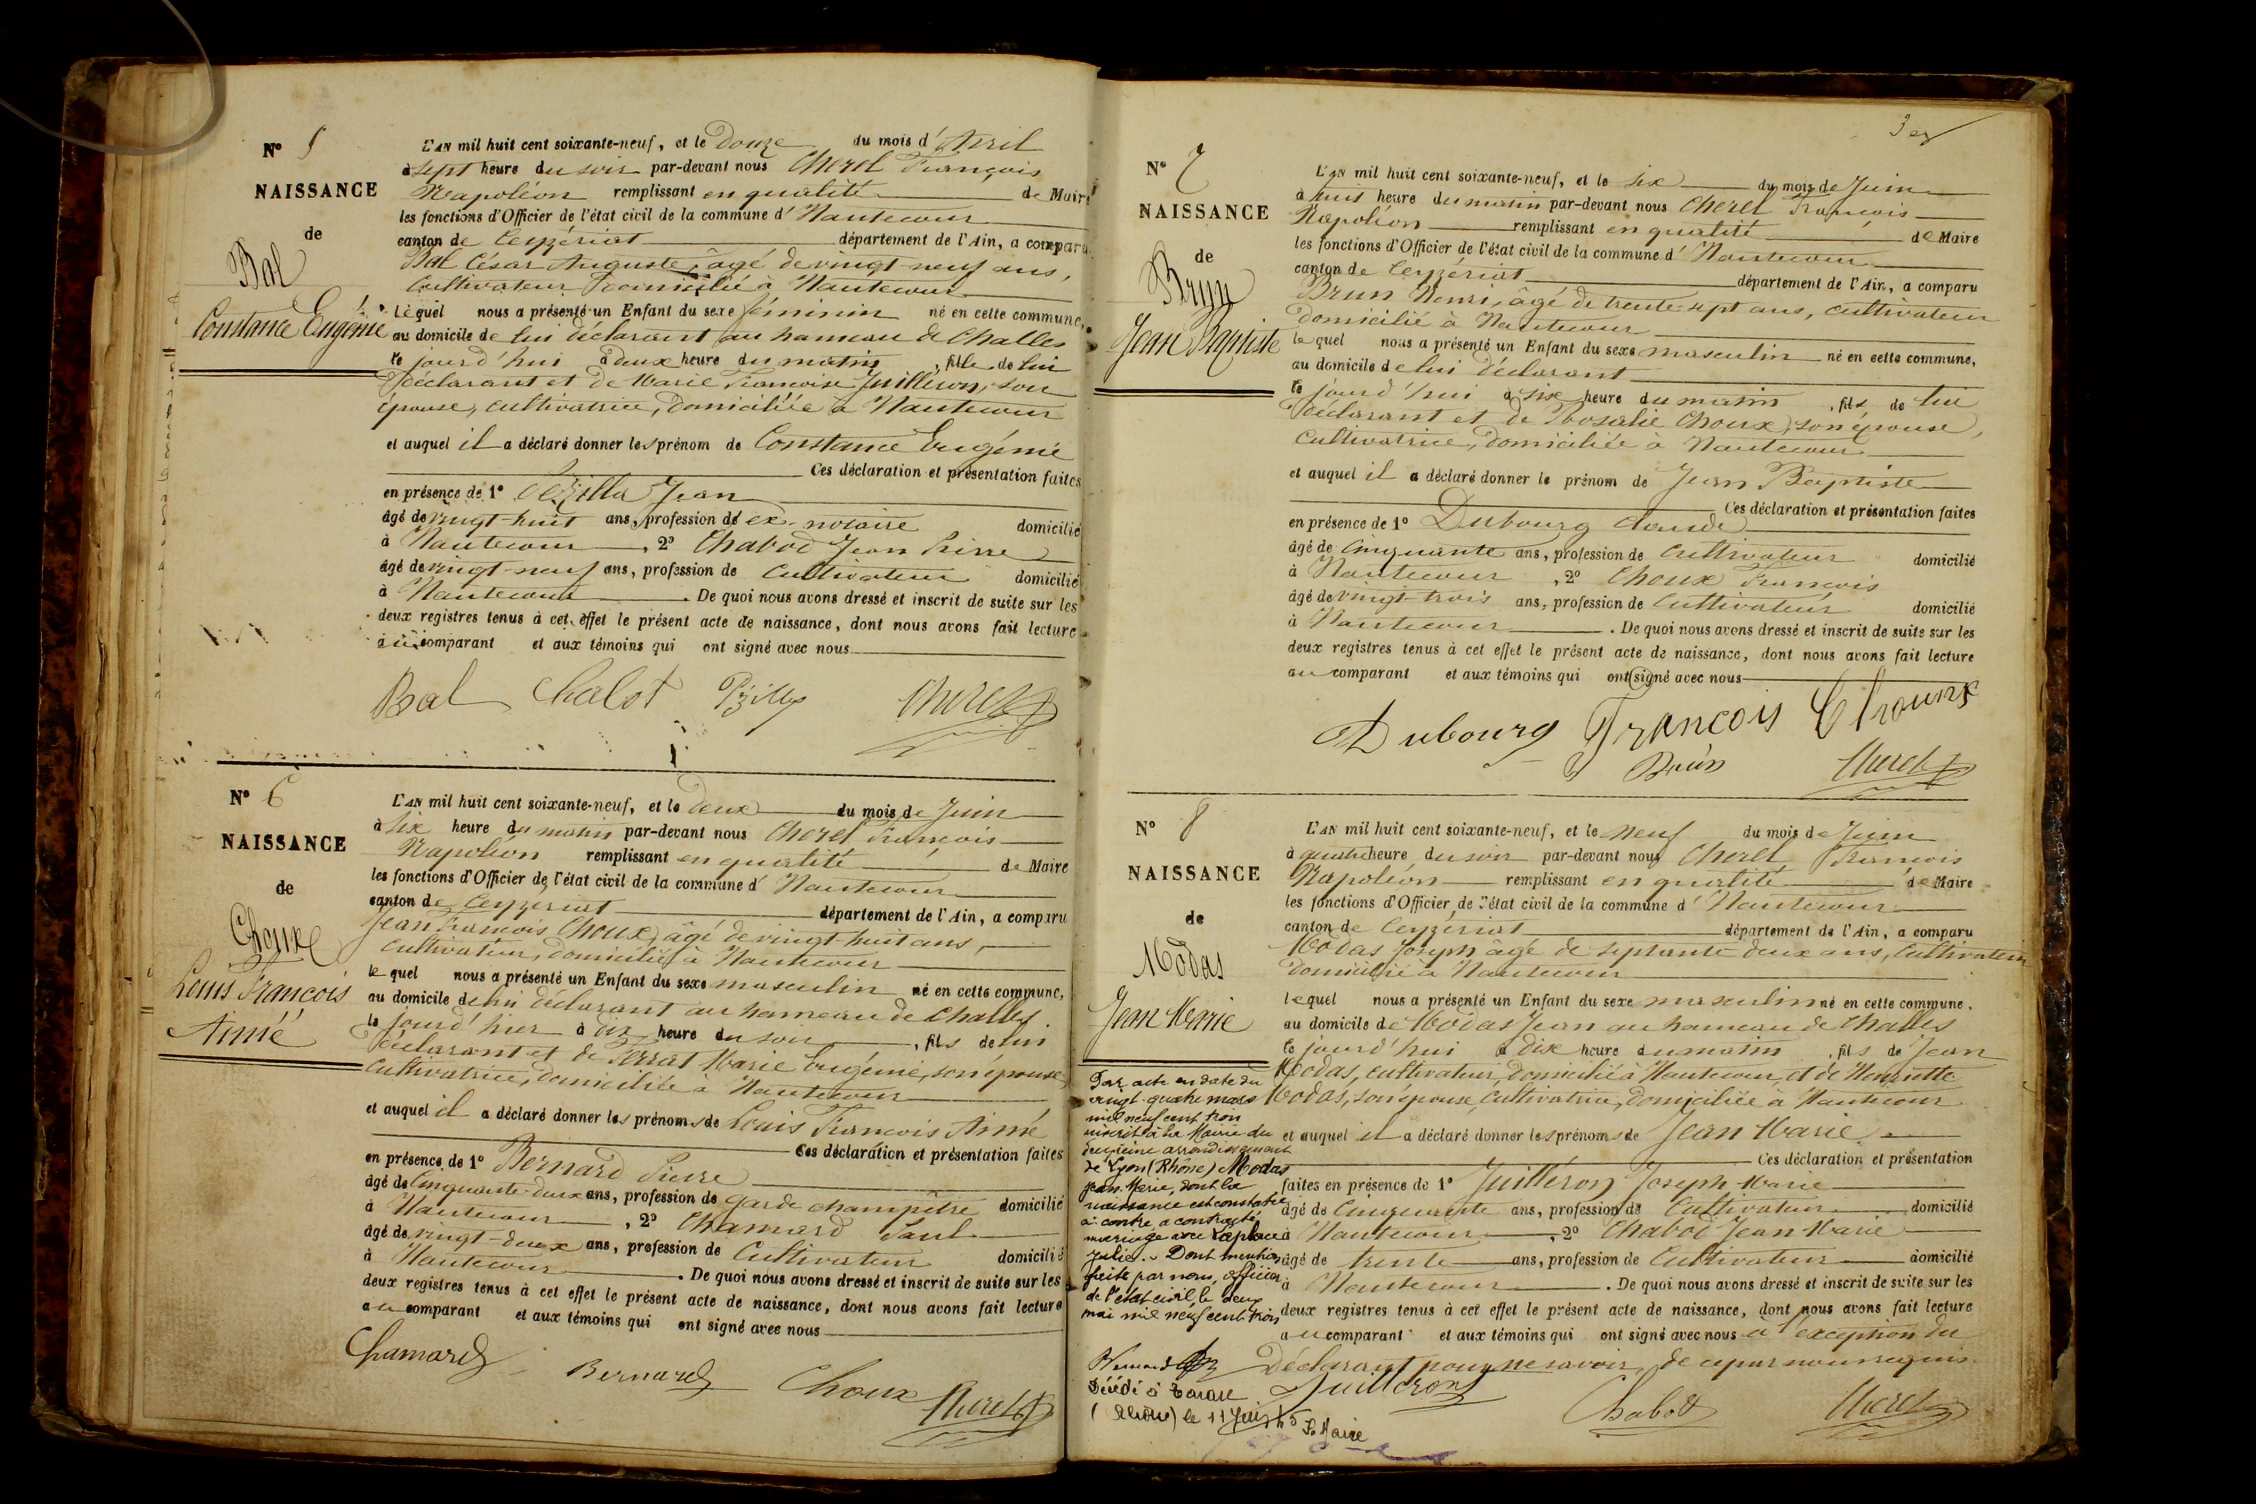 N° 5
NAISSANCE
de
Bal
Constance Eugénie
L'AN mil huit cent soixante-neuf, et le Douze du mois d'Avril
à sept heure du soir par-devant nous Cherel François
Napoléon remplissant en qualité de Maire
les fonctions d'Officier de l'état civil de la commune d'Hautecour
canton de Ceyzériat département de l'Ain, a comparu
Bal César Auguste, âgé de vingt-neuf ans,
cultivateur domicilié à Hautecour
Lequel nous a présenté un Enfant du sexe féminin né en cette commune,
au domicile de lui déclarant au hameau de Challes
le jourd'hui à deux heure du matin, fille de lui
déclarant et de Marie Françoise Juilleron, son
épouse, cultivatrice, domiciliée à Hautecour
et auquel il a déclaré donner les prénom de Constance Eugénie
Ces déclaration et présentation faites
en présence de 1° Jean
âgé de vingt-huit ans, profession de ex-notaire domicilié
à Hautecour, 2° Chabod Jean Pierre
âgé de vingt-neuf ans, profession de cultivateur domicilié
à Hautecour. De quoi nous avons dressé et inscrit de suite sur les
deux registres tenus à cet effet le présent acte de naissance, dont nous avons fait lecture
au comparant et aux témoins qui ont signé avec nous
Bal Chabot Cherel
N° 6
NAISSANCE
de
Choux
Louis François
Aimé
L'AN mil huit cent soixante-neuf, et le deux du mois de Juin
à six heure du matin par-devant nous Cherel François
Napoléon remplissant en qualité de Maire
les fonctions d'Officier de l'état civil de la commune d'Hautecour
canton de Ceyzériat département de l'Ain, a comparu
Jean François Choux, âgé de vingt huit ans,
cultivateur, domicilié à Hautecour
lequel nous a présenté un Enfant du sexe masculin né en cette commune,
au domicile de lui déclarant au hameau de Challes
le jourd'hier à dix heure du soir, fils de lui
déclarant et de Ferrat Marie Eugénie, son épouse
cultivatrice, domiciliée à Hautecour
et auquel il a déclaré donner les prénoms de Louis François Aimé
Ces déclaration et présentation faites
en présence de 1° Bernard Pierre
âgé de cinquante-deux ans, profession de garde champêtre domicilié
à Hautecour, 2° Chamard Paul
âgé de vingt-deux ans, profession de Cultivateur domicilié
à Hautecour. De quoi nous avons dressé et inscrit de suite sur les
deux registres tenus à cet effet le présent acte de naissance, dont nous avons fait lecture
au comparant et aux témoins qui ont signé avec nous
Chamard Bernard Choux Cherel
N° 7
NAISSANCE
de
Brun
Jean Baptiste
L'AN mil huit cent soixante-neuf, et le six du mois de Juin
à huit heure du matin par-devant nous Cherel François
Napoléon remplissant en qualité de Maire
les fonctions d'Officier de l'état civil de la commune d'Hautecour
canton de Ceyzériat département de l'Ain, a comparu
Brun Henri, âgé de trente-sept ans, cultivateur
domicilié à Hautecour
lequel nous a présenté un Enfant du sexe masculin né en cette commune,
au domicile de lui déclarant
le jourd'hui à six heure du matin, fils de lui
déclarant et de Rosalie Choux, son épouse,
cultivatrice, domiciliée à Hautecour
et auquel il a déclaré donner le prénom de Jean Baptiste
Ces déclaration et présentation faites
en présence de 1° Dubourg Claude
âgé de cinquante ans, profession de cultivateur domicilié
à Hautecour, 2° Choux François
âgé de vingt-trois ans, profession de Cultivateur domicilié
à Hautecour. De quoi nous avons dressé et inscrit de suite sur les
deux registres tenus à cet effet le présent acte de naissance, dont nous avons fait lecture
au comparant et aux témoins qui ont signé avec nous
Dubourg François Choux
Brun Cherel
N° 8
NAISSANCE
de
Modas
Jean Marie
L'AN mil huit cent soixante-neuf, et le neuf du mois de Juin
à quatre heure du soir par-devant nous Cherel François
Napoléon remplissant en qualité de Maire
les fonctions d'Officier de l'état civil de la commune d'Hautecour
canton de Ceyzériat département de l'Ain, a comparu
Modas Joseph âgé de septante deux ans, cultivateur
domicilié à Hautecour
lequel nous a présenté un Enfant du sexe masculin né en cette commune.
au domicile de Modas Jean au hameau de Challes
le jourd'hui à dix heure du matin, fils de Jean
Modas, cultivateur, domicilié à Hautecour, et de Henriette
Modas, son épouse, cultivatrice, domiciliée à Hautecour
et auquel il a déclaré donner les prénoms de Jean Marie
Ces déclaration et présentation
faites en présence de 1° Juilléron Joseph-Marie
âgé de Cinquante ans, profession de Cultivateur domicilié
à Hautecour, 2° Chabod Jean Marie
âgé de trente ans, profession de Cultivateur domicilié
à Hautecour. De quoi nous avons dressé et inscrit de suite sur les
deux registres tenus à cet effet le présent acte de naissance, dont nous avons fait lecture
au comparant et aux témoins qui ont signé avec nous à l'exception du
Déclarant pour ne savoir, de ce par nous requis
Juilleron Chabod Cherel
Par acte en date du
vingt-quatre mars
mil neuf cent trois
inscrit à la Mairie du
deuxième arrondissement
de Lyon (Rhône) Modas
Jean-Marie, dont la
naissance est constatée
ci-contre, a contracté
mariage avec Laplace
Julie. Dont mention
faite par nous, officier
de l'état civil, le deux
mai mil neuf cent trois
Décédé à Tarare
(Rhône) le 11 Juin
Le Maire